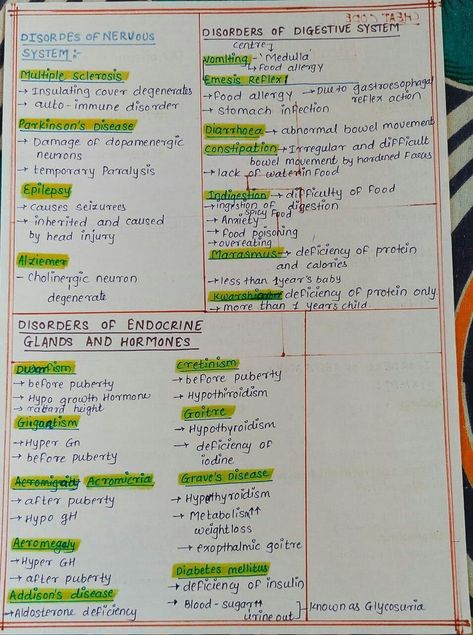 CHEAT CODE
DISORDES OF NERVOUS
SYSTEM :-
Multiple Sclerosis
→ Insulating cover degenerates
→ auto-immune disorder
Parkinson's Disease
→ Damage of dopamenergic
neurons
→ temporary Paralysis
Epilepsy
→ causes seizures
→ inherited and caused
by head injury
Alziemer
- Cholinergic neuron
degenerate
DISORDERS OF DIGESTIVE SYSTEM
centre
Vomiting - 'Medulla'
→ Food allergy
Emesis Reflex
→ Food allergy → Due to gastroesophagal
reflex action
→ Stomach infection
Diarrhoea → abnormal bowel movement
Constipation → Irregular and difficult
bowel movement by hardened Faecas
→ lack of water in food
Indigestion → difficulty of Food
→ ingestion of digestion
Spicy Food
→ Anxiety
→ Food poisoning
→ overeating
Marasmus → deficiency of protein
and calories
→ less than 1 year's baby
deficiency of protein only
→ more than 1 years child
DISORDERS OF ENDOCRINE
GLANDS AND HORMONES
Dwarfism
→ before puberty
→ Hypo growth Hormone
→ height
Gigantism
→ Hyper Gn
→ before puberty
Acromicria
→ after puberty
→ Hypo gH
Acromegaly
→ Hyper GH
→ after puberty
Addison's disease
→ Aldosterone deficiency
Cretinism
→ before puberty
→ Hypothiroidism
Goitre
→ Hypothyroidism
→ deficiency of
iodine
Grave's Disease
→ Hypothyroidism
→ Metabolism↑↑
weightloss
→ exopthalmic goitre
Diabetes mellitus
→ deficiency of insulin
→ Blood-sugar↑↑
urine out
known as Glycosuria